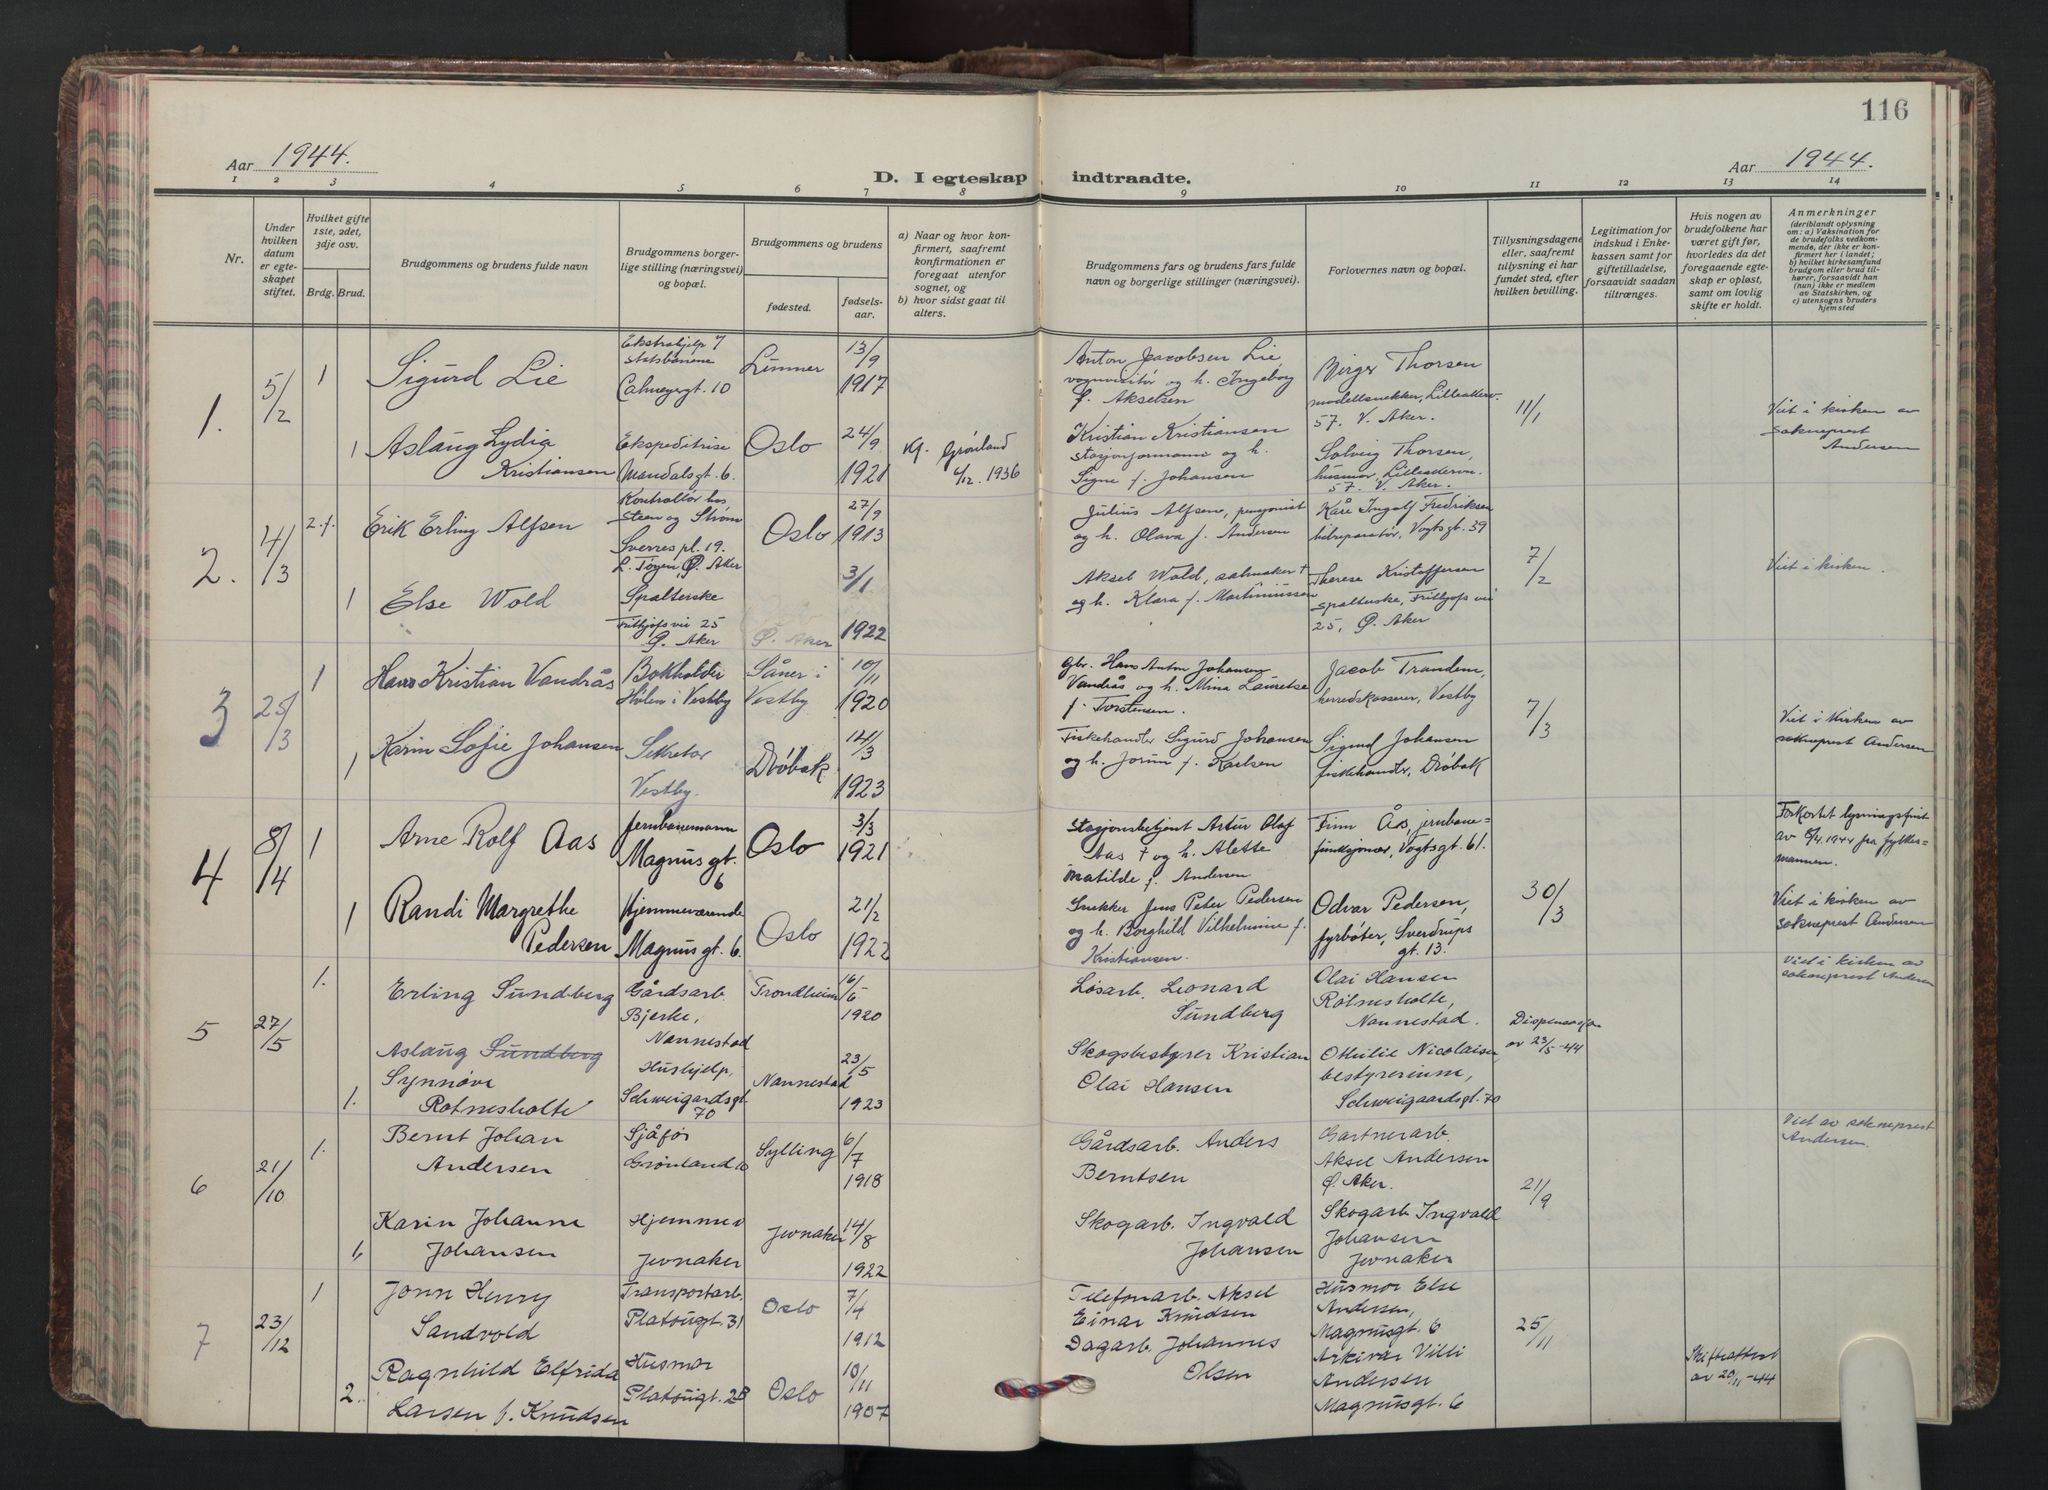 116
Aar 1944.
Aar 1944.
D. I egteskap indtraadte.
1 2 3 4 5 6 7 8 9 10 11 12 13 14
Nr.
Under hvilken datum er egteskapet stiftet.
Hvilket gifte 1ste, 2det, 3dje osv.
Brdg. Brud.
Brudgommens og brudens fulde navn
Brudgommens borgerlige stilling (næringsvei) og bopæl.
Brudgommens og brudens
fødested.
fødselsaar.
a) Naar og hvor konfirmert, saafremt konfirmationen er foregaat utenfor sognet, og
b) hvor sidst gaat til alters.
Brudgommens fars og brudens fars fulde navn og borgerlige stillinger (næringsvei).
Forlovernes navn og bopæl.
Tillysningsdagene eller, saafremt tillysning ei har fundet sted, efter hvilken bevilling.
Legitimation for indskud i Enkekassen samt for giftetilladelse, forsaavidt saadan tiltrænges.
Hvis nogen av brudefolkene har været gift før, hvorledes da det foregaaende egteskap er opløst, samt om lovlig skifte er holdt.
Anmerkninger (deriblandt oplysning om: a) Vaksination for de brudefolks vedkommende, der ikke er konfirmert her i landet; b) hvilket kirkesamfund brudgom eller brud tilhører, forsaavidt han (hun) ikke er medlem av Statskirken, og c) utensogns bruders hjemsted
1. 5/2
1
Sigurd Lie
Ekstrahjelp v/ statsbanene
Calmeyergt. 10
Limmer
13/9 1917
Anton Jacobsen Lie,
vognvisitør og h. Ingeborg
f. Akselsen
Birger Thorsen
modellsnekker, Lilleakerv.
57. V. Aker.
11/1
Viet i kirken av
sokneprest
Andersen
1
Aslaug Lydia
Kristiansen
Ekspeditrise
Mandalsgt. 6.
Oslo
24/9 1921
Kf. Grønland
6/12. 1936
Kristian Kristiansen
stasjonsformann og h.
Signe f. Johansen
Solveig Thorsen,
husmor, Lilleakerv.
57. V. Aker.
2. 4/3
2.f.
Erik Erling Alfsen
Kontrollør hos
Steen og Strøm
Sverres pl. 19.
L. Tøyen, Ø. Aker
Oslo
27/9 1913
Julius Alfsen, pensjonist
og h. Olava f. Andersen
Kåre Ingolf Fredriksen
bilreparatør, Vogtsgt. 39
7/2
Viet i kirken.
1
Else Wold
Spalterske
Fritjofs vei 25
Ø. Aker
Ø. Aker
3/1 1922
Aksel Wold, salmaker †
og h. Klara f. Martiniussen
Therese Kristoffersen
spalterske, Fritjofs vei
25, Ø. Aker
3 25/3
1
Hans Kristian Vandrås
Bokholder
Hølen i Vestby
Såner i
Vestby
10/11 1920
Gbr. Hans Anton Johansen
Vandrås og h. Mina Lauretse
f. Torstensen.
Jacob Trandem,
herredskasserer, Vestby
7/3
Viet i kirken av
sokneprest Andersen
1
Karin Sofie Johansen
Sekretær
Vestby.
Drøbak
14/3 1923
Fiskehandler Sigurd Johansen
og h. Jorun f. Karlsen
Sigurd Johansen
fiskehandler, Drøbak
4 8/4
1
Arne Rolf Aas
Jernbanemann
Magnus gt.
6
Oslo
3/3 1921
Stasjonsbetjent Artur Olaf
Aas † og h. Alette
Matilde f. Andersen
Finn Ås, jernbane=
funksjonær, Vogtsgt. 61.
30/3
Forkortet lysningsfrist
av 6/4. 1944 fra fylkes=
mannen.
Viet i kirken av
sokneprest Andersen
1
Randi Margrethe
Pedersen
Hjemmeværende
Magnus gt. 6.
Oslo
21/2 1922
Snekker Jens Peter Pedersen
og h. Borghild Vilhelmine f.
Kristiansen.
Odvar Pedersen,
fyrbøter, Sverdrups
gt. 13.
5 27/5
1.
Erling Sundberg
Gårdsarb.
Bjerke,
Nannestad
Trondheim
16/5 1920
Løsarb. Leonard
Sundberg
Olai Hansen
Rotnesholte,
Nannestad.
Dispensasjon
av 23/5-44
Viet i kirken av
sokneprest Andersen
1.
Aslaug Sundberg
Synnøve
Rotnesholte
Hushjelp,
Schweigaardsgt.
70
Nannestad
23/5 1923
Skogsbestyrer Kristian
Olai Hansen
Othilie Nicolaisen
bestyrerinne,
Schweigaardsgt. 70
6 21/10
1.
Bernt Johan
Andersen
Sjåfør
Grønland 10
Sylling
6/7 1918
Gårdsarb. Anders
Berntsen
Gartnerarb.
Aksel Andersen
Ø. Aker.
21/9
Viet av sokneprest
Andersen.
1,
Karin Johanne
Johansen
Hjemmev
Jevnaker
Jevnaker
14/8 1922
Skogarb. Ingvald
Johansen
Skogarb. Ingvald
Johansen
Jevnaker
7 23/12
1
Jonn Henry
Sandvold
Transportarb.
Platougt. 31
Oslo
7/4 1912
Telefonarb. Aksel
Einar Knudsen
Husmor Else
Andersen,
Magnusgt. 6
25/11
2.
Ragnhild Elfrida
Larsen f. Knudsen
Husmor
Platougt. 28
Oslo
10/11 1907
Dagarb. Johannes
Olsen
Arkivar Villi
Andersen
Magnusgt. 6
Skifteattest
av 20/11-44